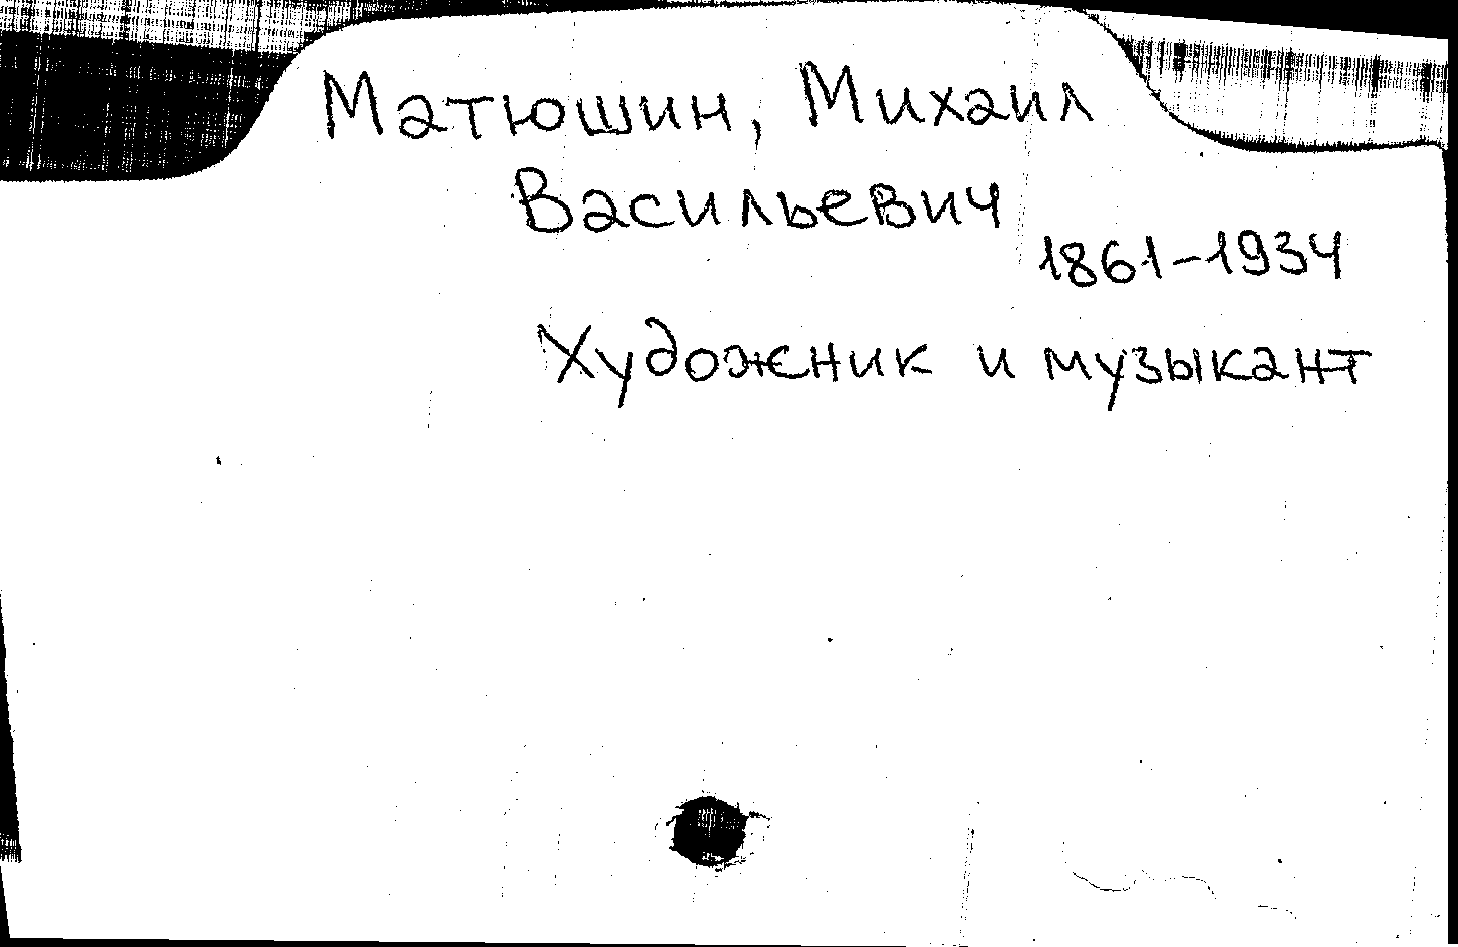 Матюшин, Михаил
Васильевич
1861-1934
Художник и музыкант